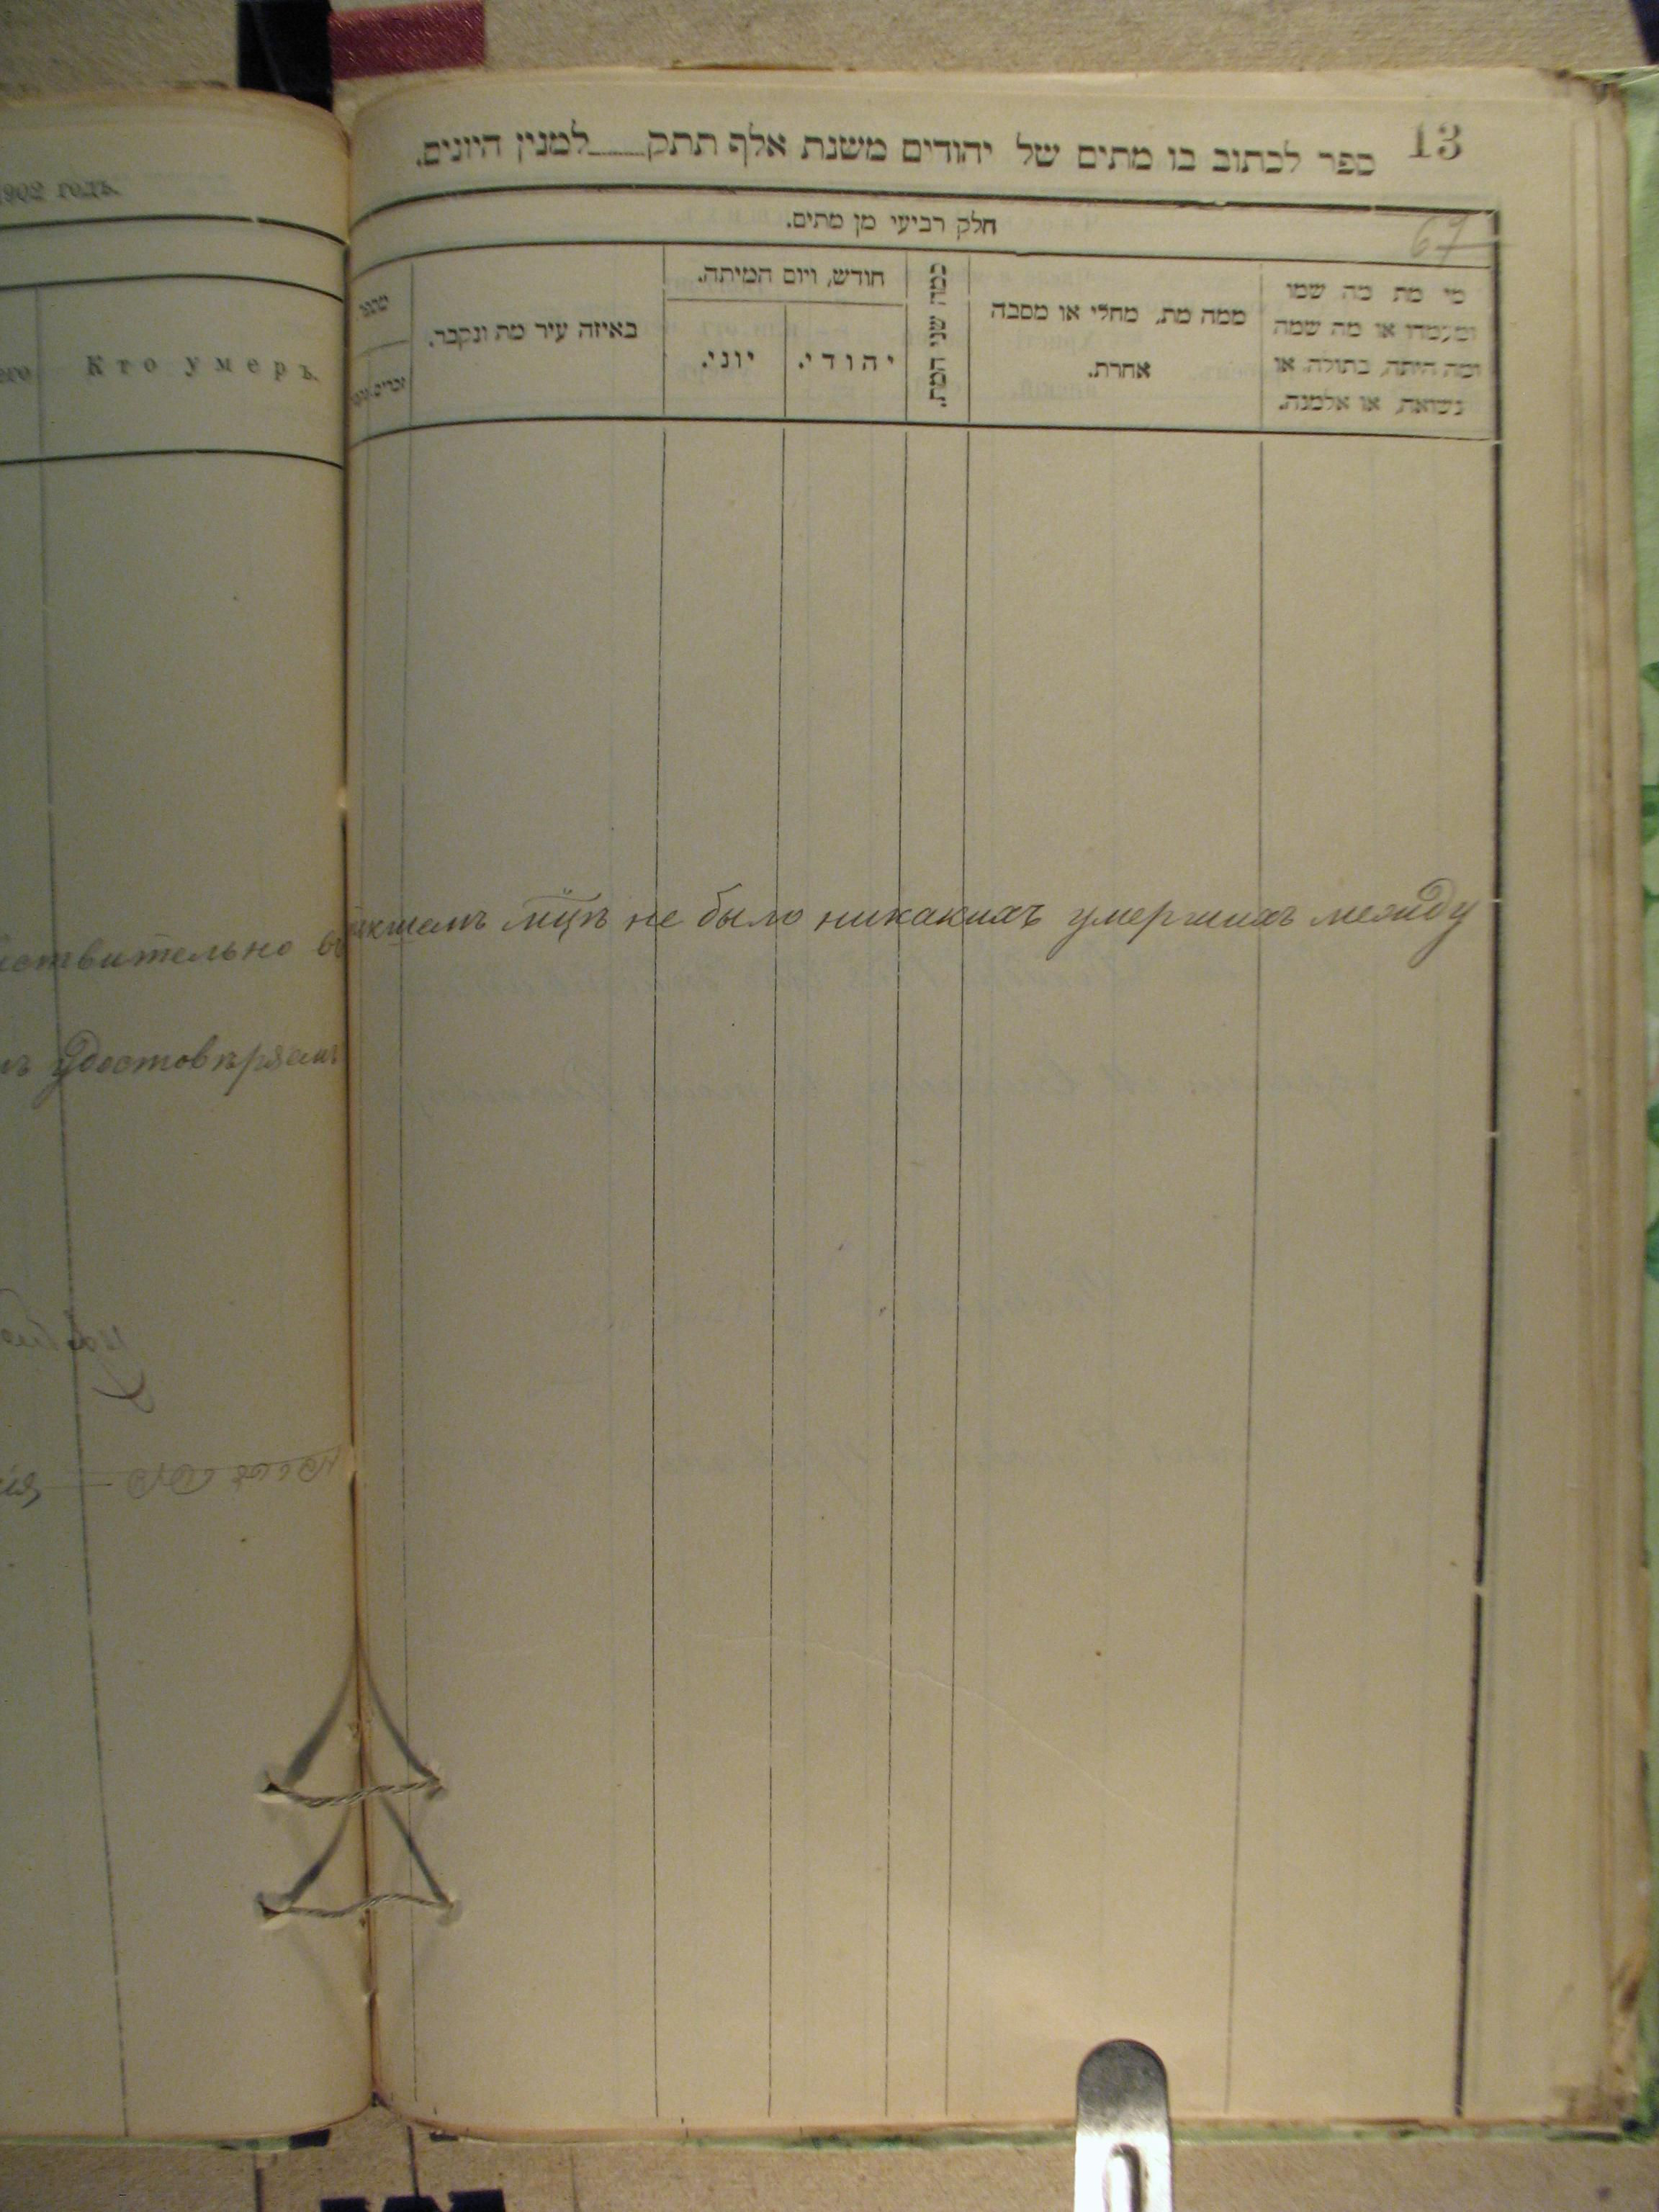 13
ספר לכתוב בו מתים של יהודים משנת אלף תתק למנין היונים.
חלק רביעי מן מתים.
67
מי מת מה שמו
ומעמדו או מה שמה
ומה היתה, בתולה, או
נשואה, או אלמנה.
ממה מת, מחלי או מסבה
אחרת.
כמה שני המת.
חודש, ויום המיתה.
יהודי.
יוני.
באיזה עיר מת ונקבר.
מספר
זכרים
1902 годъ.
Кто умеръ.
его
ствительно въ
не было никакихъ умершихъ между
удостовѣряемъ